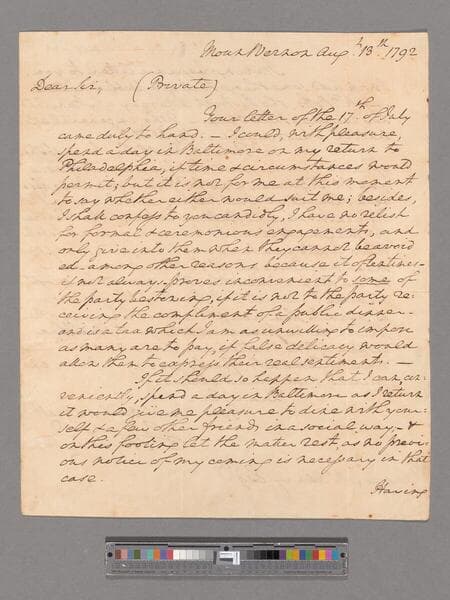 Mount Vernon Aug.t 13.th 1792
Dear Sir, (Private)
Your letter of the 17.th of July
came duly to hand. – I could, with pleasure,
spend a day in Baltimore on my return to
Philadelphia, if time & circumstances would
permit; but it is not for me at this moment
to say whether either would suit me; besides,
I shall confess to you candidly, I have no relish
for formal & ceremonious engagements, and
only give into them when they cannot be avoid
ed – among other reasons because it oftentimes –
if not always – proves inconvenient to some of
the party bestowing, if it is not to the party re-
ceiving the compliment of a public dinner –
and is a tax which I am as unwilling to impose
as many are to pay, if false delicacy would
allow them to express their real sentiments. –
If it should so happen that I can, con-
veniently, spend a day in Baltimore as I return
it would give me pleasure to dine with your-
self & a few other friends in a social way – &
on this footing let the matter rest as no previ-
ous notice of my coming is necessary in that
case.
Having